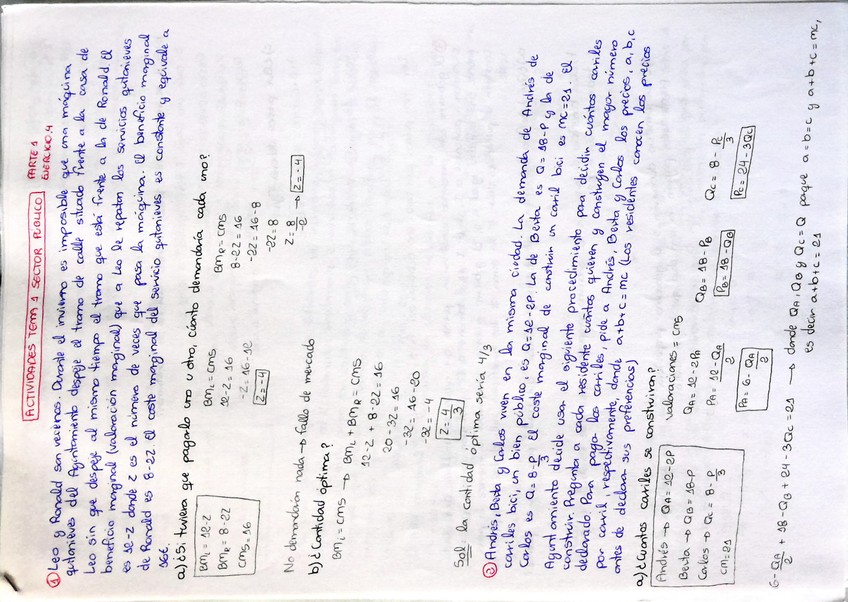 ACTIVIDADES TEMA 1 SECTOR PÚBLICO
PARTE 1
EJERCICIO 4
① Leo y Ronald son vecinos. Durante el invierno es imposible que una máquina
quitanieves del Ayuntamiento despeje el tramo de calle situado frente a la casa de
Leo sin que despeje al mismo tiempo el tramo que está frente a la de Ronald. El
beneficio marginal (valoración marginal) que a Leo le reportan los servicios quitanieves
es 12-Z donde Z es el número de veces que pasa la máquina. El beneficio marginal
de Ronald es 8-2Z. El coste marginal del servicio quitanieves es constante y equivale a
16€.
a) ¿Si tuviera que pagarlo uno u otro, cuánto demandaría cada uno?
BML = 12-Z
BMR = 8-2Z
CMS = 16
BML = CMS
12-Z = 16
-Z = 16-12
Z = -4
BMR = CMS
8-2Z = 16
-2Z = 16-8
-2Z = 8
Z = 8/-2 → Z = -4
No demandarían nada → fallo de mercado
b) ¿Cantidad óptima?
BML = CMS → BML + BMR = CMS
12-Z + 8-2Z = 16
20-3Z = 16
-3Z = 16-20
-3Z = -4
Z = 4/3
Sol: la cantidad óptima sería 4/3
② Andrés, Berta y Carlos viven en la misma ciudad. La demanda de Andrés de
carriles bici, un bien público, es Q = 12-2P. La de Berta es Q = 18-P y la de
Carlos es Q = 8-P/3. El coste marginal de construir un carril bici es MC = 21. El
Ayuntamiento decide usar el siguiente procedimiento para decidir cuántos carriles
construir. Pregunta a cada residente cuántos quieren y construyen el mayor número
declarado. Para pagar los carriles, pide a Andrés, Berta y Carlos los precios, a, b, c
por carril, respectivamente, donde a+b+c = MC (Los residentes conocen los precios
antes de declarar sus preferencias)
a) ¿Cuántos carriles se construirán?
Andrés → QA = 12-2P
Berta → QB = 18-P
Carlos → QC = 8-P/3
CM = 21
Valoraciones = CMS
QA = 12-2PA
PA = 12-QA/2
PA = 6-QA/2
QB = 18-PB
PB = 18-QB
QC = 8-PC/3
PC = 24-3QC
6-QA/2 + 18-QB + 24-3QC = 21 → donde QA, QB y QC = Q porque a=b=c y a+b+c = MC,
es decir a+b+c = 21